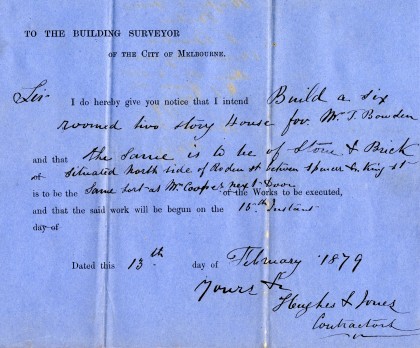 TO THE BUILDING SURVEYOR
OF THE CITY OF MELBOURNE.
Sir I do hereby give you notice that I intend Build a six
roomed two story House for Mr T. Bowden
and that the same is to be of Stone & Brick
at situated North side of Roden St between Spencer & King St
is to be the Same sort as Mr Cooper next Door of the Works to be executed,
and that the said work will be begun on the 15th Instant
day of
Dated this 13th day of February 1879
Yours Sr
Hughes & Jones
Contractors